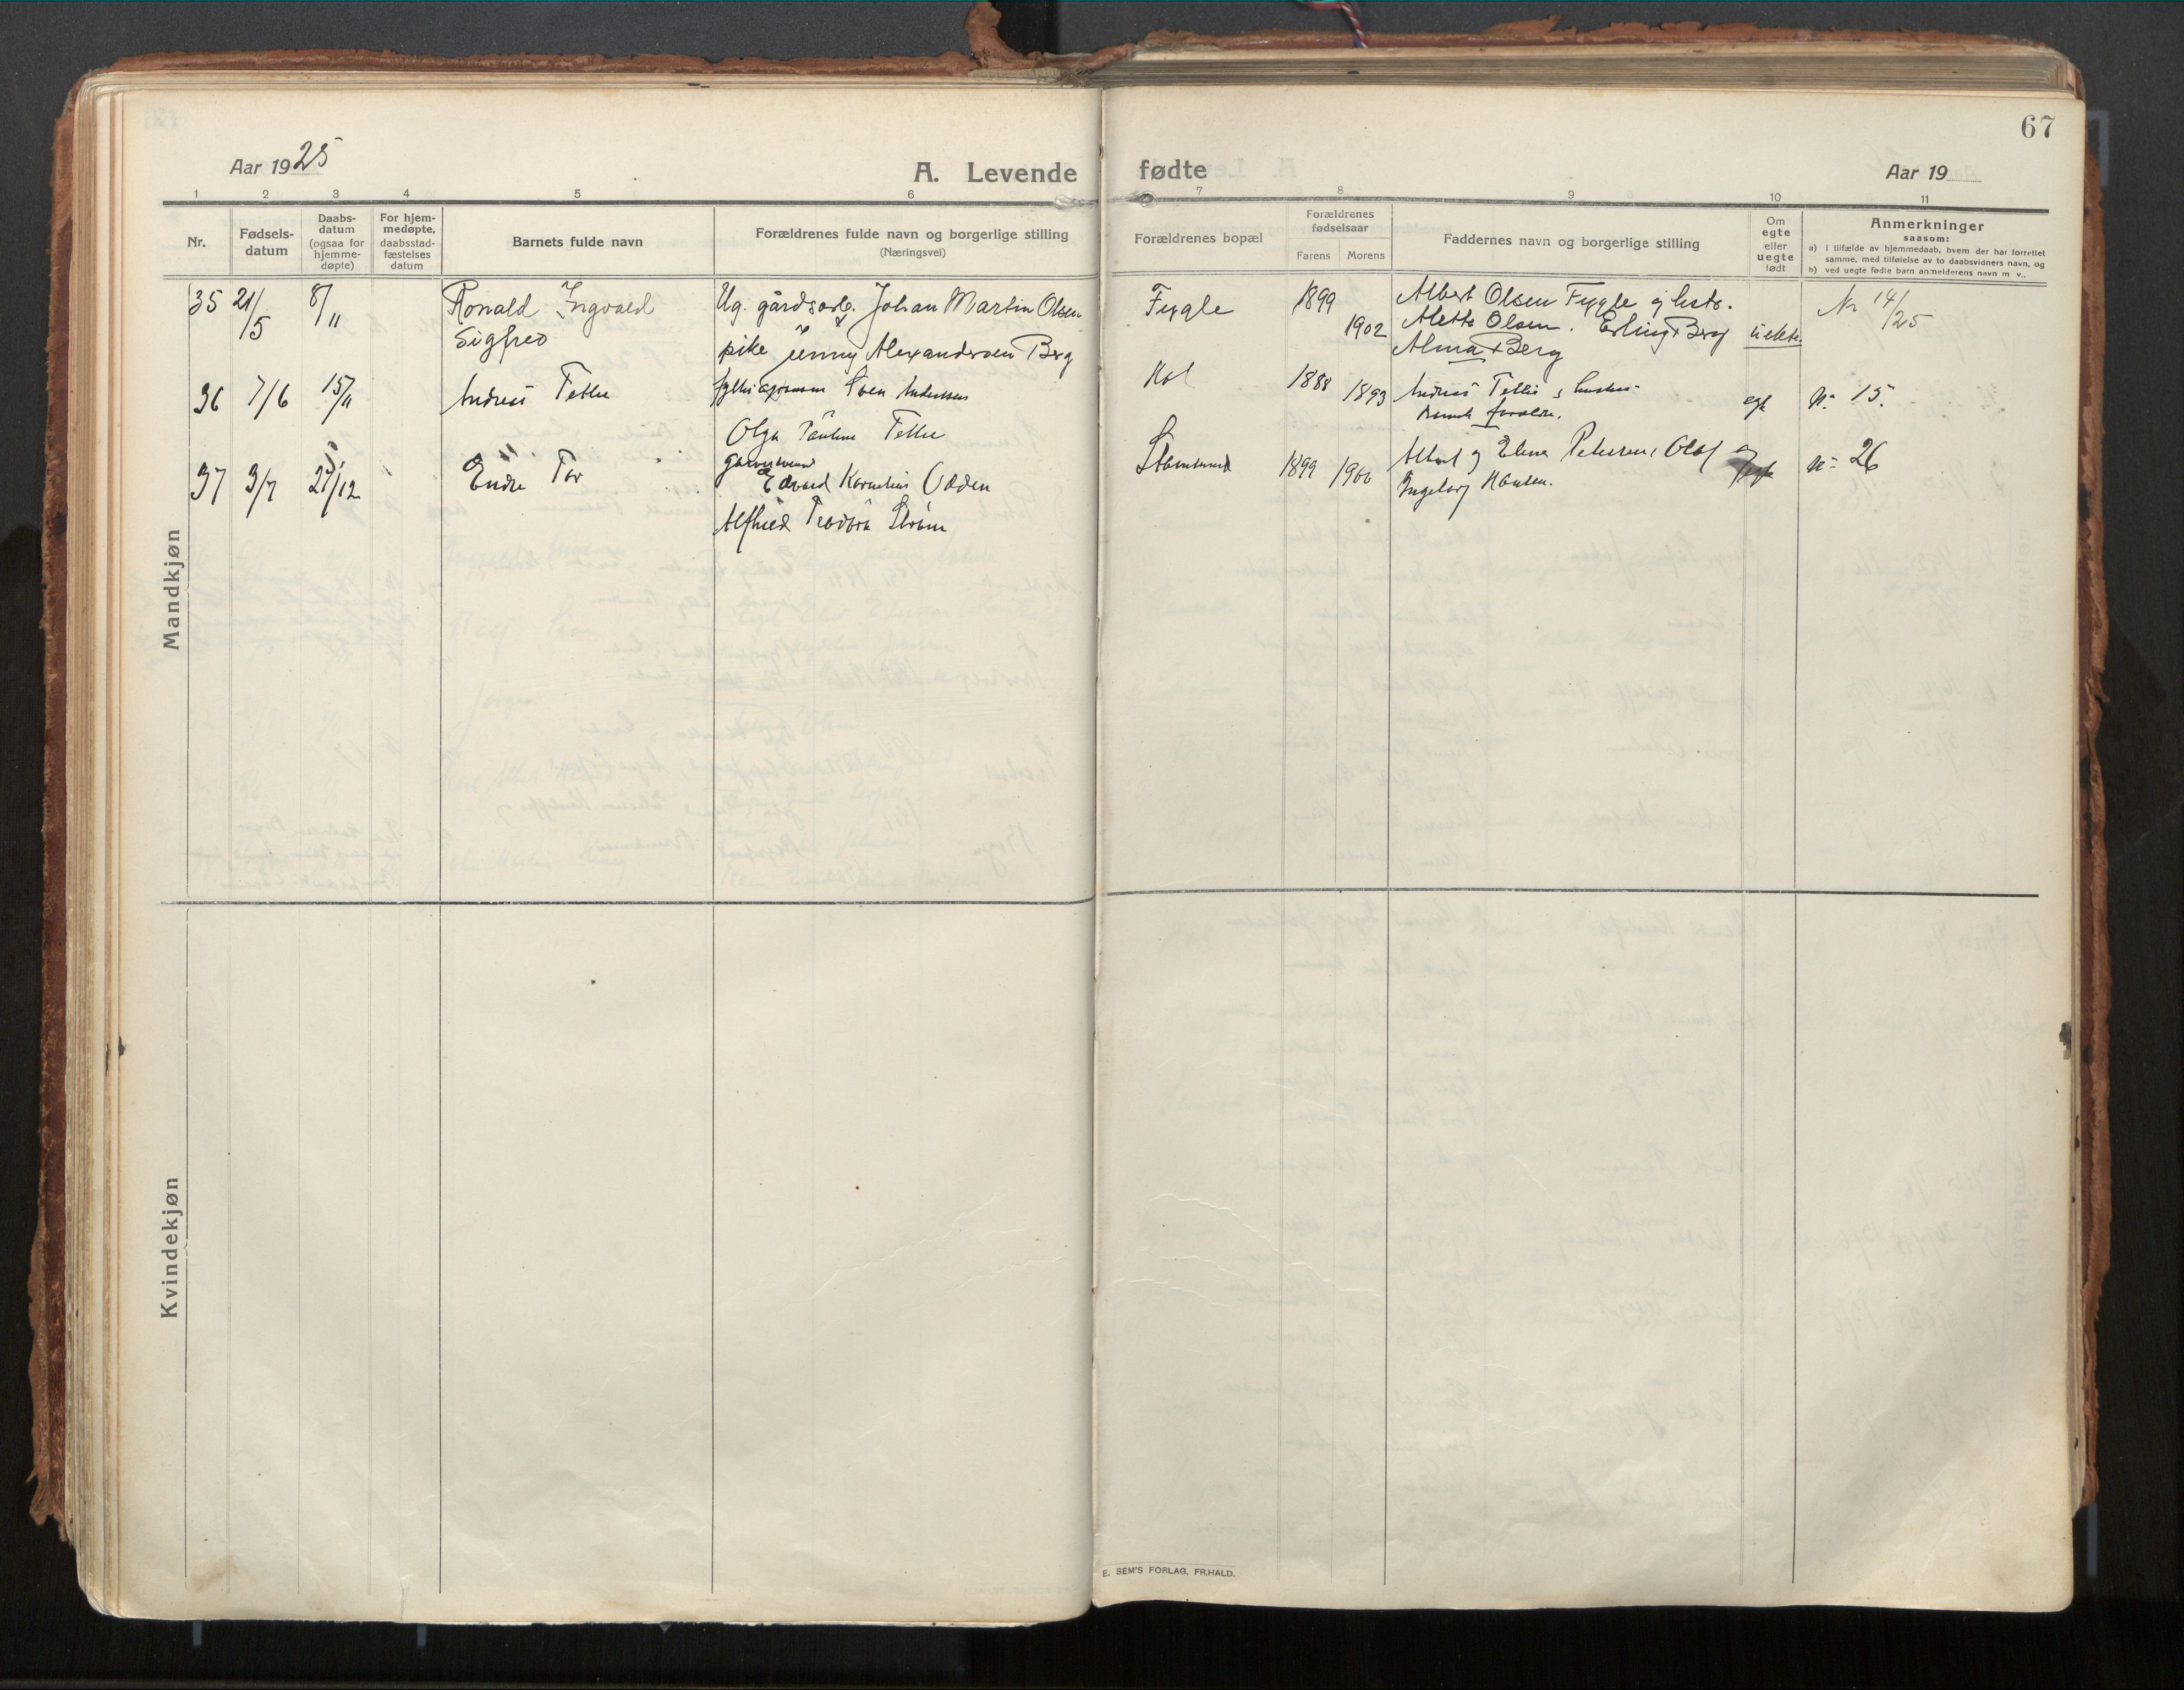 67
Aar 1925
A. Levende fødte
Aar 19
1 2 3 4 5 6 7 8 9 10 11
Nr.
Fødsels-
datum
Daabs-
datum
(ogsaa for
hjemme-
døpte)
For hjem-
medøpte,
daabsstad-
fæstelses
datum
Barnets fulde navn
Forældrenes fulde navn og borgerlige stilling
(Næringsvei)
Forældrenes bopæl
Forældrenes
fødselsaar
Farens Morens
Faddernes navn og borgerlige stilling
Om
egte
eller
uegte
født
Anmerkninger
saasom:
a) i tilfælde av hjemmedaab, hvem der har forrettet
samme, med tilføielse av to daabsvidners navn, og
b) ved uegte fødte barn anmelderens navn m. v..
Mandkjøn
35 21/5 8/11 Ronald Ingvald
Sigfred
Ug. gårdsarb. Johan Martin Olsen
pike Jenny Alexandersen Berg
Fygle 1899 1902
Albert Olsen Fygle og hustr.
Alette Olsen. Erling Berg
Alma Berg
uekte. Nr 14/25
36 7/6 15/11
Olga Pauline
1888 1893
egte No 15.
37 3/7 27/12 Endre Tor
Edvard Kornelius Odden
Alfhild Teodora Strøm
Stamsund 1899 1900
Albert og Elena Petersen, Olaf og
Ingeborg Hansen.
egte No 26
Kvindekjøn
E. SEM'S FORLAG, FR.HALD.